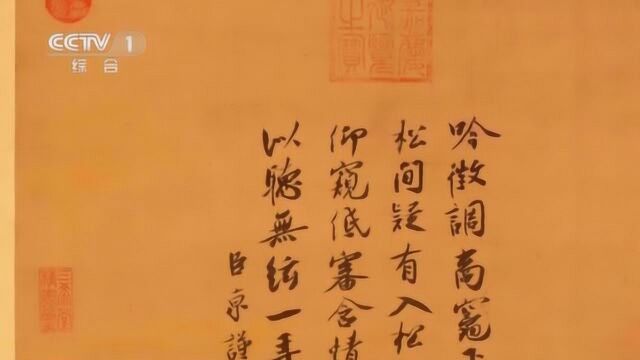 CCTV 1
综合
吟徵調商竈
松間疑有入松
仰窺低審含情
以聽無絃一
臣京謹